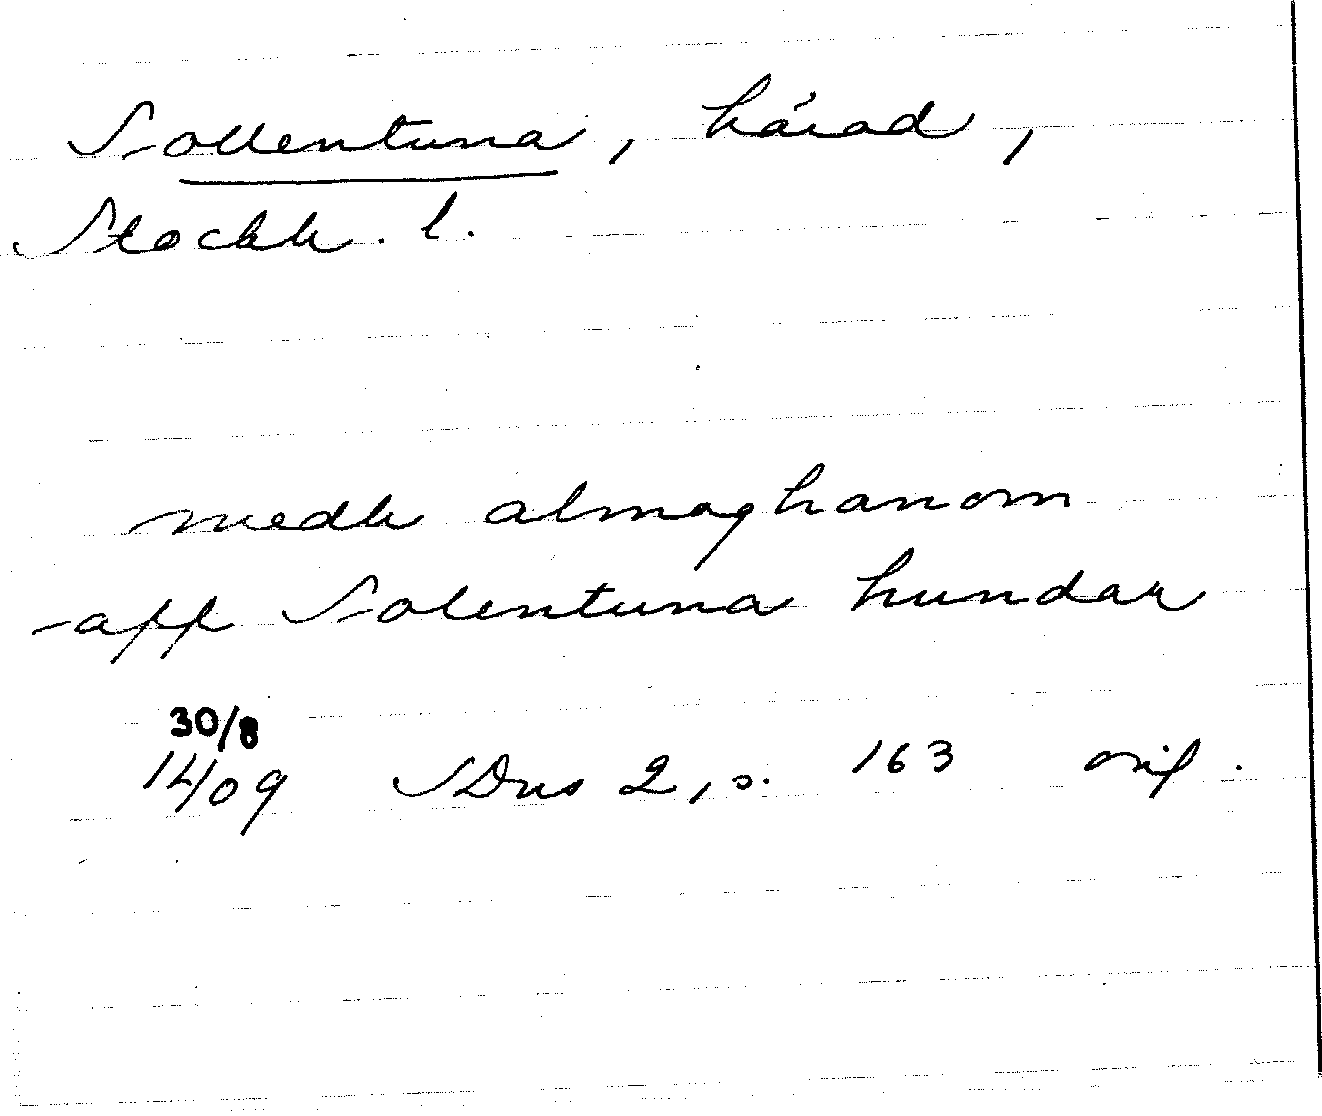 Sollentuna, härad,
Stockh. l.
medh almoghanom
aff Solentuna hundar
30/8
1409 SDns 2, s. 163 orig.